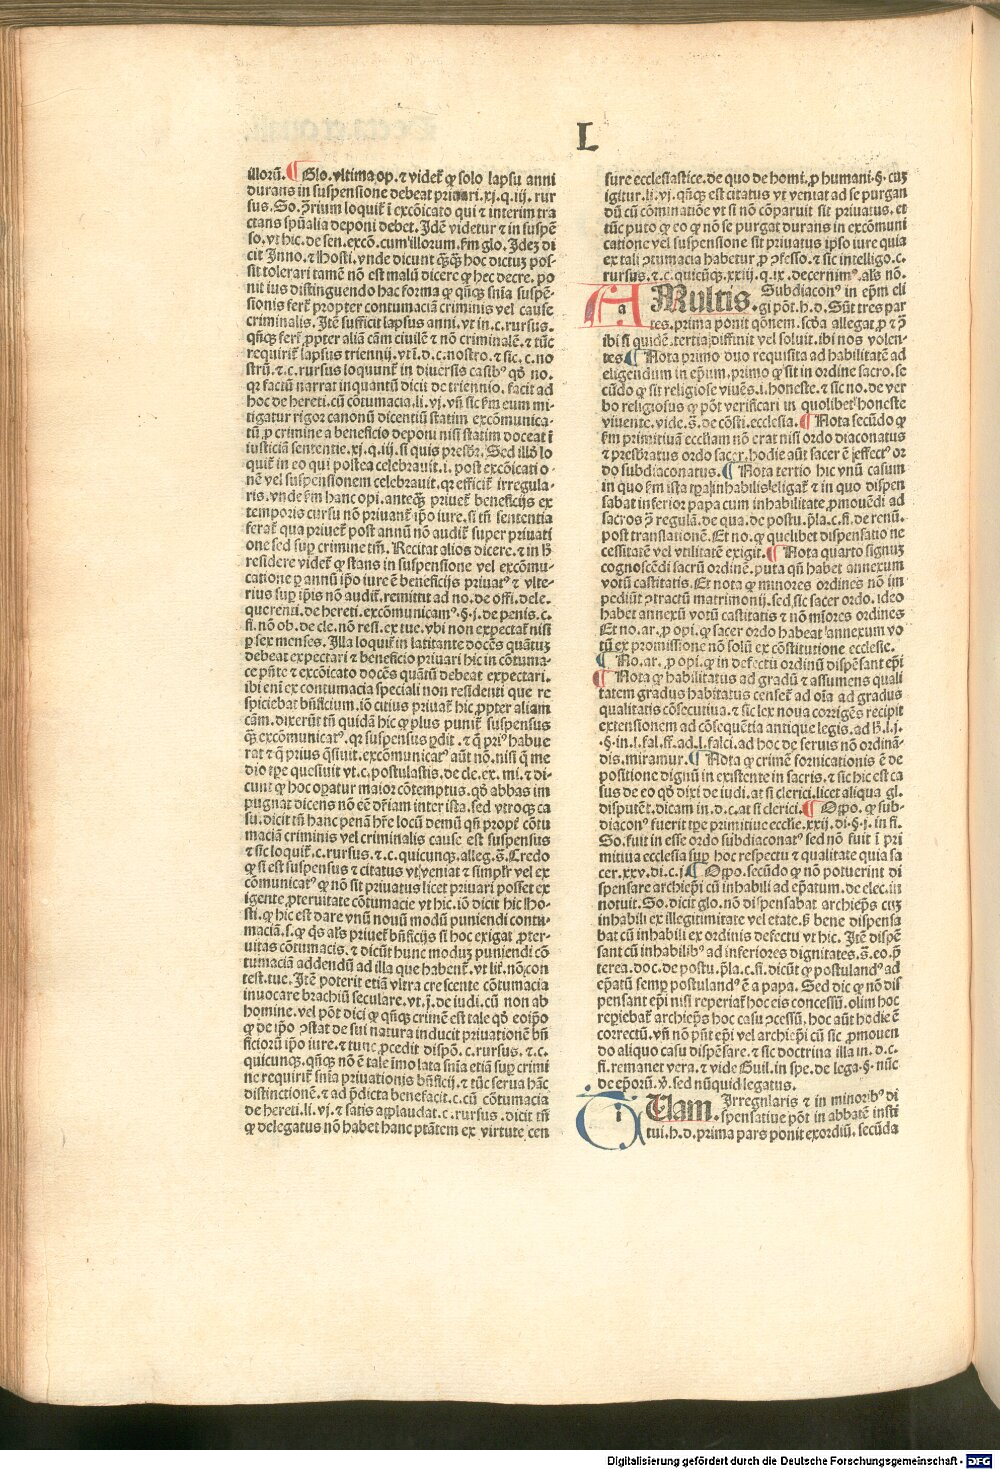 L
illorū. Glo. vltima op. ⁊ videt̄ ꝙ solo lapsu anni
durans in suspensione debeat priuari. xj. q. iij. rur
sus. So. ꝯ̄rium loquit̄ ī excōicato qui ⁊ interim tra
ctans spūalia deponi debet. Idē videtur ⁊ in suspē
so. vt hic. de sen. excō. cum illorum. fm̄ glo. Idez di
cit Inno. ⁊ Hosti. vnde dicunt ꝙꝙ̄ hoc dictuz pos-
sit tolerari tamē nō est malū dicere ꝙ hec decre. po
nit ius distinguendo hac forma ꝙ qn̄qꝫ snīa suspē-
sionis fert̄ propter contumaciā criminis vel cause
criminalis. Itē sufficit lapsus anni. vt in. c. rursus.
qn̄qꝫ fert̄ ꝓpter aliā cām ciuilē ⁊ nō criminalē. ⁊ tūc
requirit̄ lapsus triennij. vt ī. d. c. nostro. ⁊ sic. c. no
strū. ⁊ c. rursus loquunt̄ in diuersis casibꝰ qd̄ no.
qꝛ factū narrat inquantū dicit de triennio. facit ad
hoc de hereti. cū cōtumacia. li. vj. vn̄ sic fm̄ eum mi-
tigatur rigoꝛ canonū dicentiū statim excōmunica-
tū ꝓ crimine a beneficio deponi nisi statim doceat ī
iusticiā sententie. xj. q. iij. si quis presbr̄. Sed illō lo
quit̄ in eo qui postea celebrauit. i. post excōicatio-
nē vel suspensionem celebrauit. qꝛ efficit̄ irregula-
ris. vnde fm̄ hanc opi. anteqꝫ priuet̄ beneficijs ex
temporis cursu nō priuant̄ ip̄o iure. si tn̄ sententia
ferat̄ qua priuet̄ post annū nō audit̄ super priuati
one sed suꝑ crimine tm̄. Recitat alios dicere. ⁊ in h̄
residere videt̄ ꝙ stans in suspensione vel excōmu-
catione ꝑ annū ip̄o iure ē beneficijs priuatꝰ ⁊ vlte-
rius suꝑ ip̄is nō audit̄. remittit ad no. de offi. dele.
querenti. de hereti. excōmunicamꝰ. §. j. de penis. c.
fi. nō ob. de cle. nō resi. ex tue. vbi non expectat̄ nisi
ꝑ sex menses. Illa loquit̄ in latitante docēs quātuꝫ
debeat expectari ⁊ beneficio priuari hic in cōtuma-
ce pn̄te ⁊ excōicato docēs quātū debeat expectari.
ibi eni ex contumacia speciali non residenti que re
spiciebat bn̄ficium. iō citius priuat̄ hic ꝓpter aliam
cām. dixerūt tn̄ quidā hic ꝙ plus punit̄ suspensus
qꝫ excōmunicatꝰ. qꝛ suspensus ꝑdit. ⁊ q̄ priꝰ habue
rat ⁊ q̄ prius q̄siuit. excōmunicatꝰ aūt nō. nisi q̄ me
dio tp̄e quesiuit vt c. postulastis. de cle. ex. mi. ⁊ di-
cunt ꝙ hoc oꝑatur maior cōtemptus. qd̄ abbas im
pugnat dicens nō eē dr̄iam inter ista. sed vtroqꝫ ca
su. dicit tn̄ hanc penā hr̄e locū demū qn̄ propt̄ cōtu
maciā criminis vel criminalis cause est suspensus
⁊ sic loquit̄. c. rursus. ⁊. c. quicunqꝫ. alleg. s̄. Credo
ꝙ si est suspensus ⁊ citatus vt veniat ⁊ simplr̄ vel ex
cōmunicatꝰ ꝙ nō sit priuatus licet priuari posset ex
igente ꝓteruitate cōtumacie vt hic. iō dicit hic Ho-
sti. ꝙ hic est dare vnū nouū modū puniendi contu-
maciā. s. ꝙ qs̄ als̄ priuet̄ bn̄ficijs si hoc exigat ꝓter-
uitas cōtumacis. ⁊ dicūt hunc moduꝫ puniendi cō
tumaciā addendū ad illa que habent̄. vt lit̄. nō. con
test. tue. Itē poterit etiā vltra crescente cōtumacia
inuocare brachiū seculare. vt. j. de iudi. cū non ab
homine. vel pōt dici ꝙ qn̄qꝫ crimē est tale qd̄ eoip̄o
ꝙ de ip̄o ꝯstat de sui natura inducit priuationē bn̄
ficiorū ip̄o iure. ⁊ tunc ꝓcedit dispō. c. rursus. ⁊. c.
quicunqꝫ. qn̄qꝫ nō ē tale imo lata snīa etiā suꝑ crimi
ne requirit̄ snīa priuationis bn̄ficij. ⁊ tūc serua hāc
distinctionē. ⁊ ad p̄dicta benefacit. c. cū cōtumacia
de hereti. li. vj. ⁊ satis applaudat. c. rursus. dicit tn̄
ꝙ delegatus nō habet hanc ptātem ex virtute cen
sure ecclesiastice. de quo de homi. ꝓ humani. §. cuꝫ
igitur. li. vj. qn̄qꝫ est citatus vt veniat ad se purgan
dū cū cōminatiōe vt si nō cōparuit sit priuatus. et
tūc puto ꝙ eo ꝙ nō se purgat durans in excōmuni
catione vel suspensione sit priuatus ipso iure quia
ex tali ꝯtumacia habetur ꝓ ꝯfesso. ⁊ sic intelligo. c.
rursus. ⁊. c. quicūqꝫ. xxiij. q. ix. decernimꝰ. als̄ nō.
A Multis. Subdiaconꝰ in ep̄m eli
gi pōt. h. d. Sūt tres par
tes. prima ponit qōnem. scd̄a allegat ꝓ ⁊ ꝯ̄
ibi si quidē. tertia diffinit vel soluit. ibi nos volen-
tes. Nota primo duo requisita ad habilitatē ad
eligendum in ep̄um. primo ꝙ sit in ordine sacro. se
cūdo ꝙ sit religiose viuēs. i. honeste. ⁊ sic no. de ver
bo religiosus ꝙ pōt verificari in quolibet honeste
viuente. vide. s̄. de cōsti. ecclesia. Nota secūdo ꝙ
fm̄ primitiuā eccliam nō erat nisi ordo diaconatus
⁊ presbratus ordo sacer. hodie aūt sacer ē effectꝰ or
do subdiaconatus. Nota tertio hic vnū casum
in quo fm̄ ista tꝑa inhabilis eligat̄ ⁊ in quo dispen
sabat inferior papa cum inhabilitate ꝓmouēdi ad
sacros ꝯ̄ regulā. de qua. de postu. p̄la. c. fi. de renū.
post translationē. Et no. ꝙ quelibet dispensatio ne
cessitatē vel vtilitatē exigit. Nota quarto signuꝫ
cognoscēdi sacrū ordinē. puta qn̄ habet annexum
votū castitatis. Et nota ꝙ minores ordines nō im
pediūt ꝯtractū matrimonij. sed sic sacer ordo. ideo
habet annexū votū castitatis ⁊ nō mīores ordines
Et no. ar. ꝓ opi. ꝙ sacer ordo habeat annexum vo
tū ex promissione nō solū ex cōstitutione ecclesie.
No. ar. ꝓ opi. ꝙ in defectu ordinū dispēsant ep̄i
Nota ꝙ habilitatus ad gradū ⁊ assumens quali
tatem gradus habitatus censet̄ ad oīa ad gradus
qualitatis cōsecutiua. ⁊ sic lex noua corrigēs recipit
extensionem ad cōsequētia antique legis. ad h̄. l. j.
§. in. l. fal. ff. ad. l. falci. ad hoc de seruis nō ordinā-
dis. miramur. Nota ꝙ crimē fornicationis ē de
positione dignū in existente in sacris. ⁊ sic hic est ca
sus de eo qd̄ dixi de iudi. at si clerici. licet aliqua gl.
disputēt. dicam in. d. c. at si clerici. Oppo. ꝙ sub-
diaconꝰ fuerit tp̄e primitiue ecclie. xxij. di. §. j. in fi.
So. fuit in esse ordo subdiaconatꝰ sed nō fuit ī pri
mitiua ecclesia suꝑ hoc respectu ⁊ qualitate quia sa
cer. xxv. di. c. j. Oppo. secūdo ꝙ nō potuerint di
spensare archiep̄i cū inhabili ad ep̄atum. de elec. in
notuit. So. dicit glo. nō dispensabat archiep̄s cuꝫ
inhabili ex illegitimitate vel etate. s̄ bene dispensa
bat cū inhabili ex ordinis defectu vt hic. Itē dispē
sant cū inhabilibꝰ ad inferiores dignitates. s̄. eo. p̄
terea. doc. de postu. p̄la. c. fi. dicūt ꝙ postulandꝰ ad
ep̄atū semꝑ postulandꝰ ē a papa. Sed dic ꝙ nō dis
pensant ep̄i nisi reperiat̄ hoc eis concessū. olim hoc
reꝑiebat̄ archiep̄s hoc casu ꝯcessū. hoc aūt hodie ē
correctū. vn̄ nō pn̄t ep̄i vel archiep̄i cū sic ꝓmouen
do aliquo casu dispēsare. ⁊ sic doctrina illa in. d. c.
fi. remanet vera. ⁊ vide Guil. in spe. de lega. §. nūc
de ep̄orū. v̄. sed nūquid legatus.
Tuam. Irregularis ⁊ in minoribꝰ di
spensatiue pōt in abbatē insti
tui. h. d. prima pars ponit exordiū. secūda
Digitalisierung gefördert durch die Deutsche Forschungsgemeinschaft - DFG